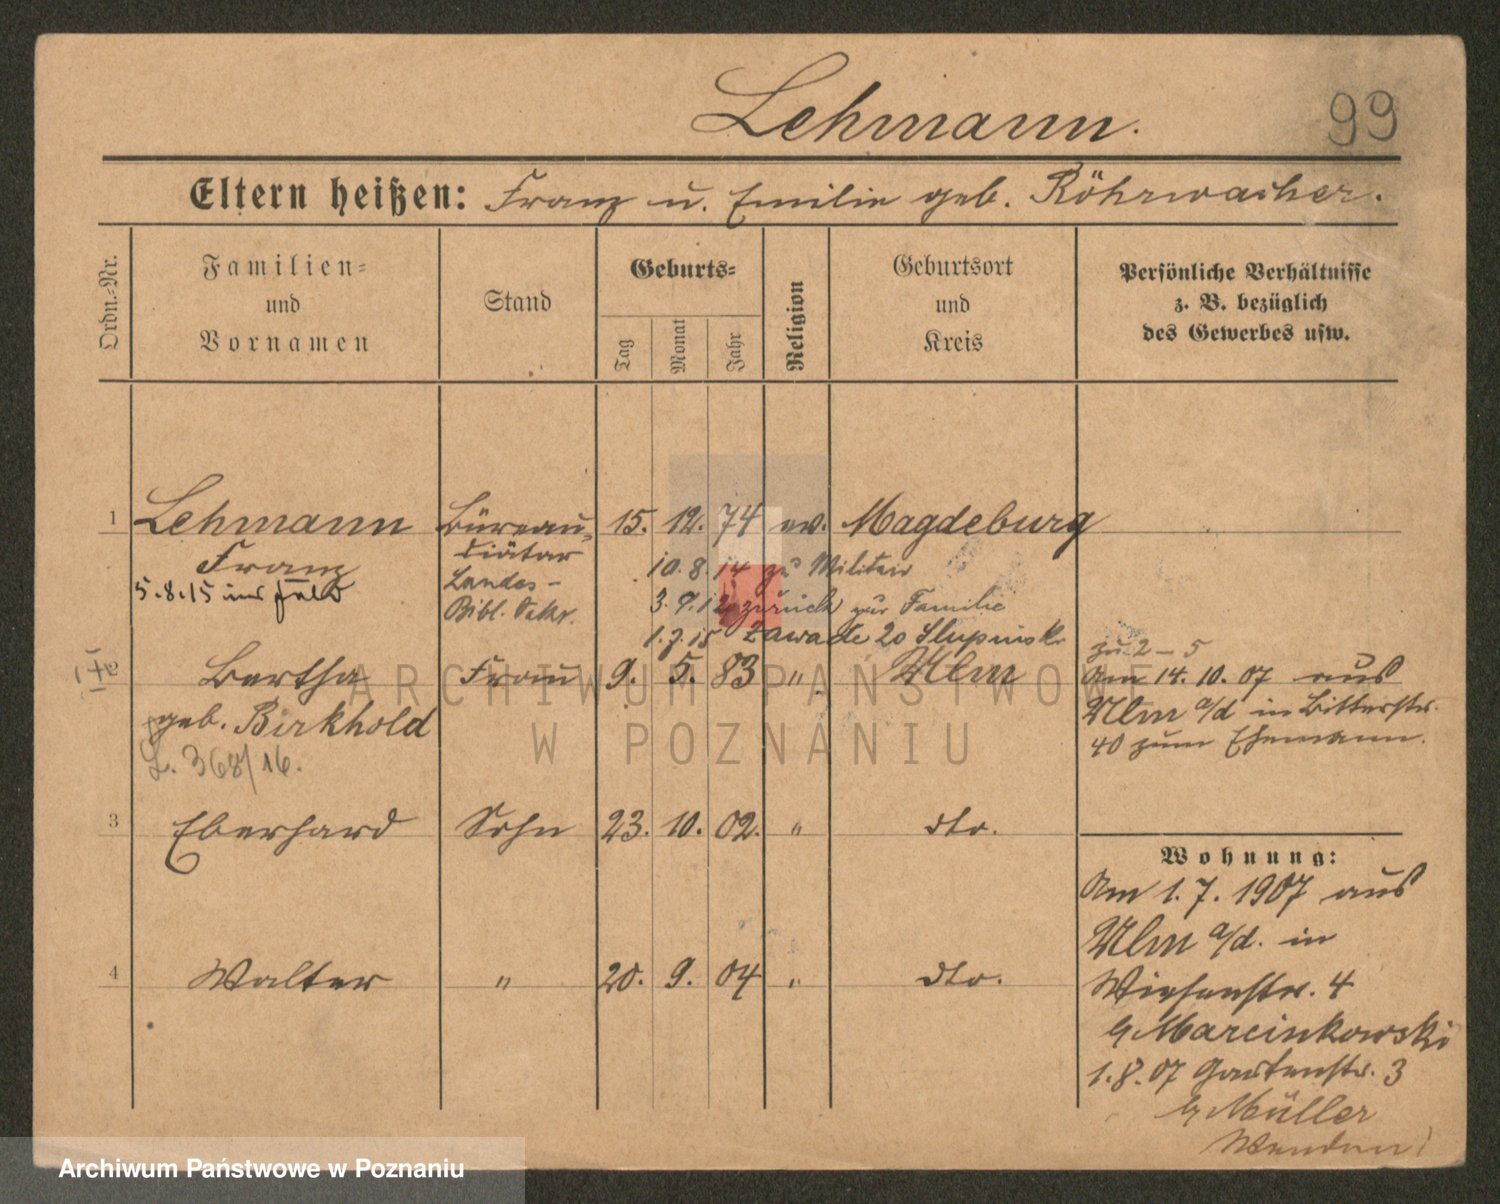 Lehmann.
99
Eltern heißen: Franz u. Emilie geb. Röhrwacher.
Ordn.-Nr.
Familien=
und
Vornamen
Stand
Geburts=
Tag
Monat
Jahr
Religion
Geburtsort
und
Kreis
Persönliche Verhältnisse
z. B. bezüglich
des Gewerbes usw.
1 Lehmann Büreau- 15. 12. 74 ev. Magdeburg
Franz diätar 10.8.14 zu Militair
5.8.15 ins Feld Landes-
Bibl. Sekr. 3.9.12 zurück zur Familie
1.7.15 Zawade 20 Slupinski
zu 2-5
2 Bertha Frau 9. 5. 83 " Ulm Am 14. 10. 07 aus
geb. Birkhold Ulm a/d in Bitterstr.
L. 368/16. 40 zum Ehemann.
3 Eberhard Sohn 23. 10. 02. " dto.
Wohnung:
Am 1. 7. 1907 aus
Ulm a/d. in
4 Walter " 20. 9. 04 " dto. Wiesenstr. 4
b/ Marcinkowski
1.8.07 Gartenstr. 3
b/ Müller
Wenden!
ARCHIWUM PAŃSTWOWE
W POZNANIU
Archiwum Państwowe w Poznaniu